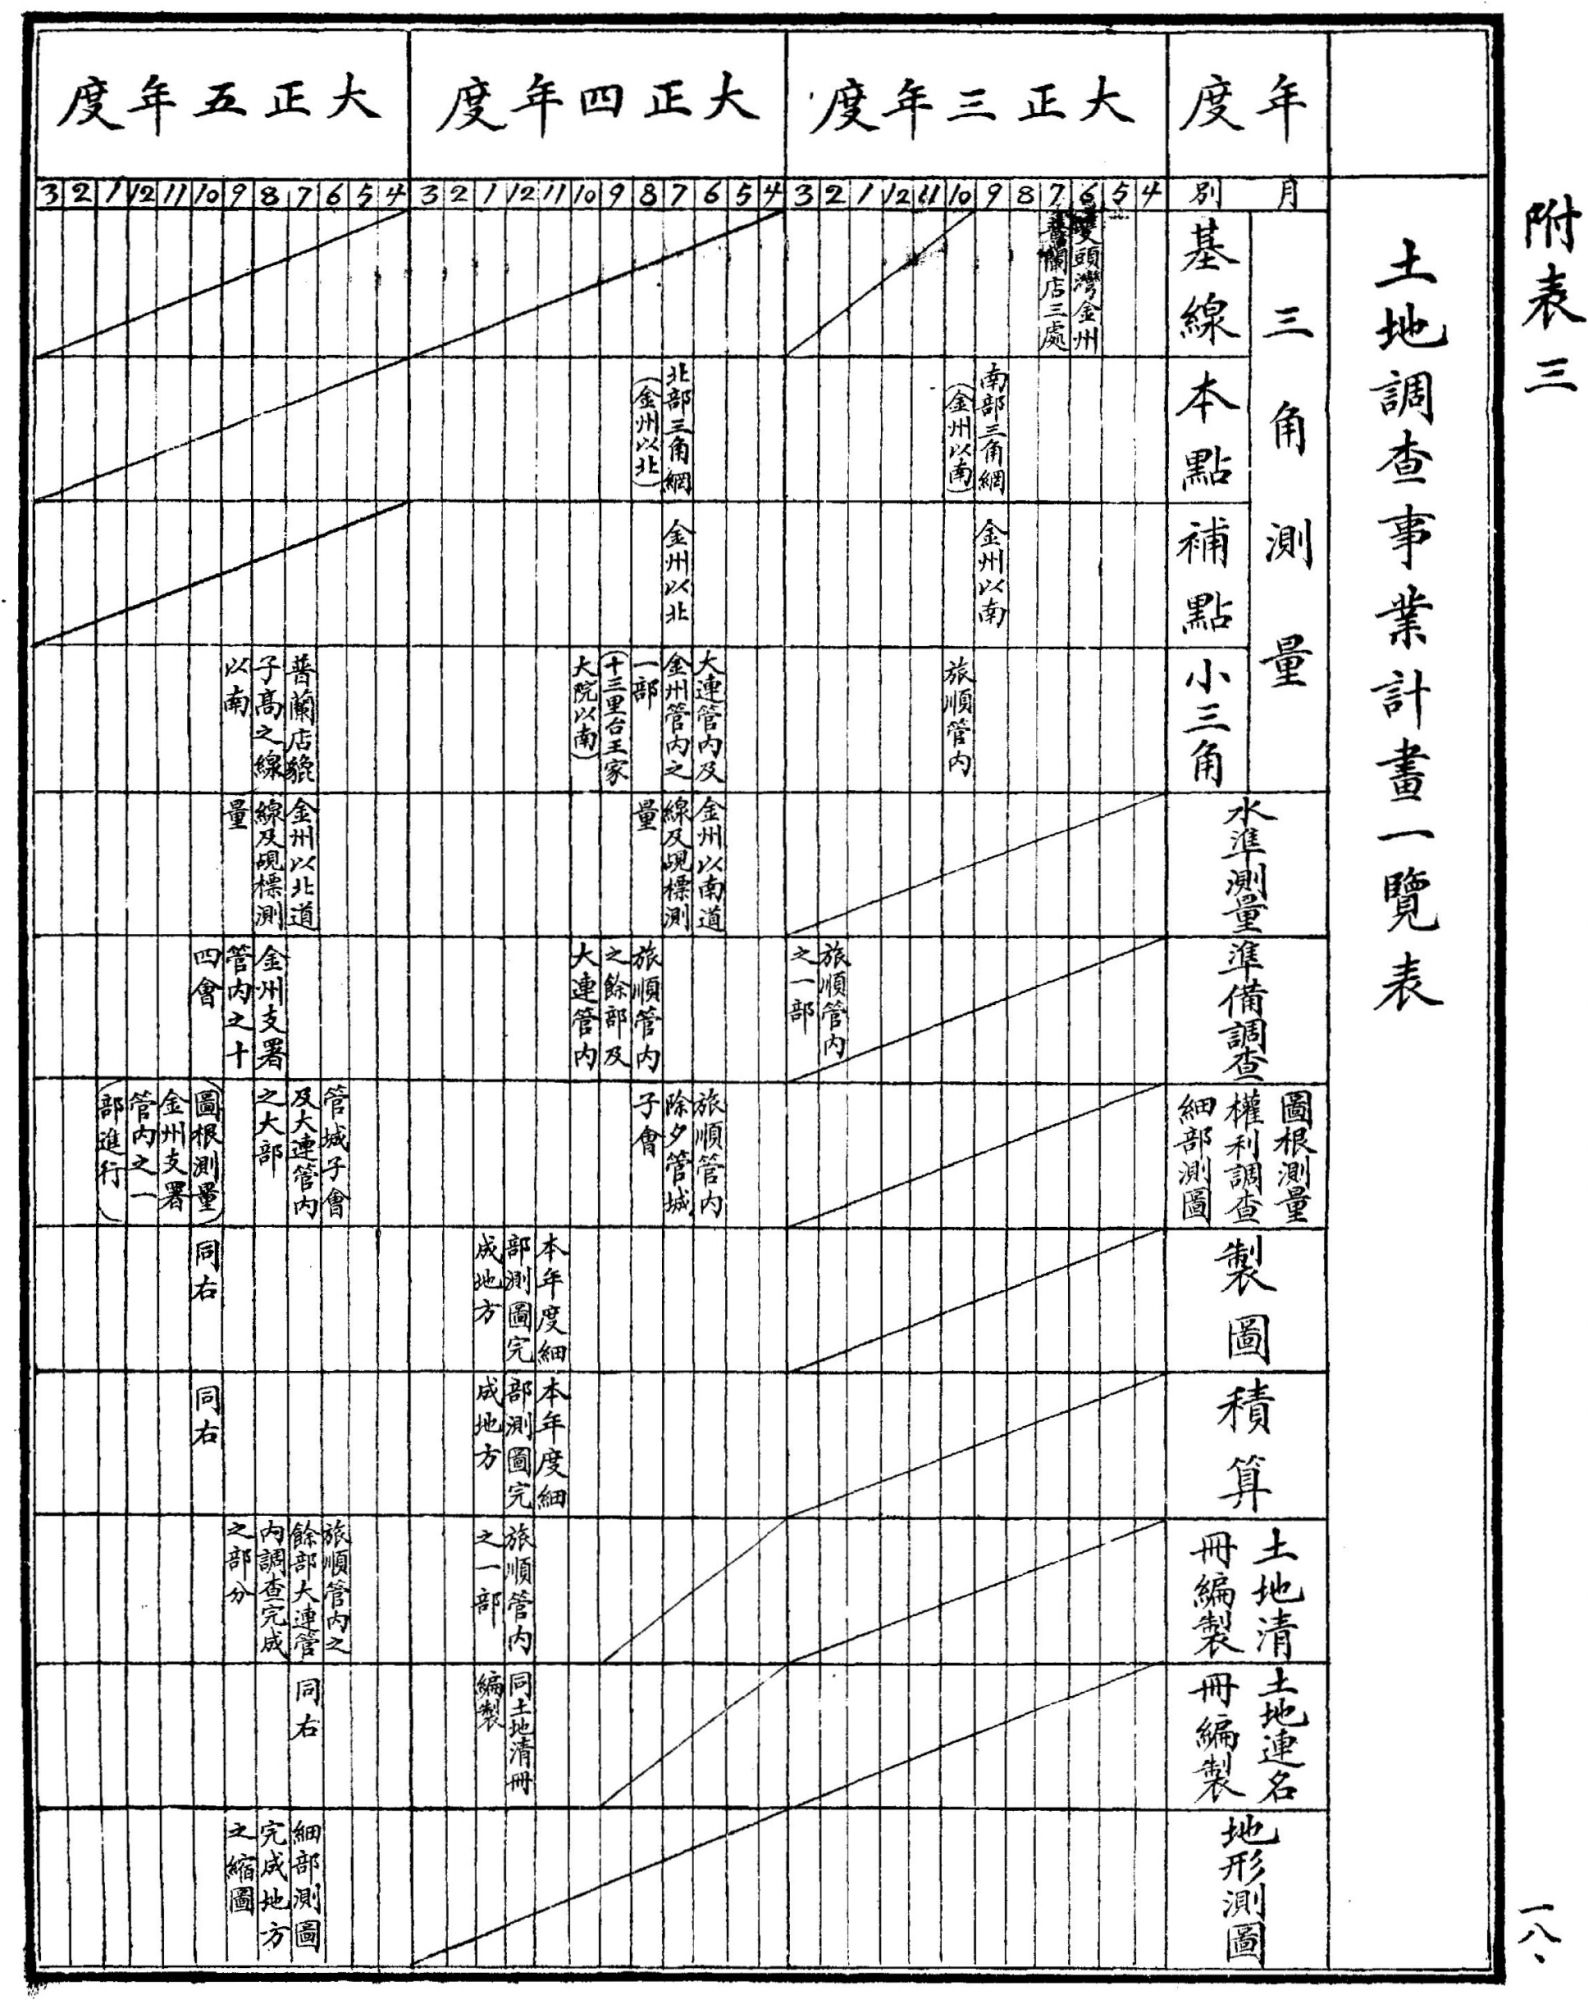 附表三
土地調查事業計畫一覽表
年度
大正三年度
大正四年度
大正五年度
月別
4 5 6 7 8 9 10 11 12 1 2 3
4 5 6 7 8 9 10 11 12 1 2 3
4 5 6 7 8 9 10 11 12 1 2 3
三角測量
基線
雙頭灣金州
蘭店三處
本點
南部三角網
(金州以南)
北部三角網
(金州以北)
補點
金州以南
金州以北
小三角
旅順管內
大連管內及
金州管內之
一部
(十三里台王家
大院以南)
普蘭店貔
子高之線
以南
水準測量
金州以南道
線及覘標測
量
金州以北道
線及覘標測
量
準備調查
旅順管內
之一部
旅順管內
之餘部及
大連管內
金州支署
管內之十
四會
圖根測量
權利調查
細部測圖
旅順管內
除夕管城
子會
管城子會
及大連管內
之大部
(圖根測量)
金州支署
管內之一
(部進行)
製圖
本年度細
部測圖完
成地方
同右
積算
本年度細
部測圖完
成地方
同右
土地清
冊編製
旅順管內
之一部
旅順管內之
餘部大連管
內調查完成
之部分
土地連名
冊編製
同土地清冊
編製
同右
地形測圖
細部測圖
完成地方
之縮圖
一八、